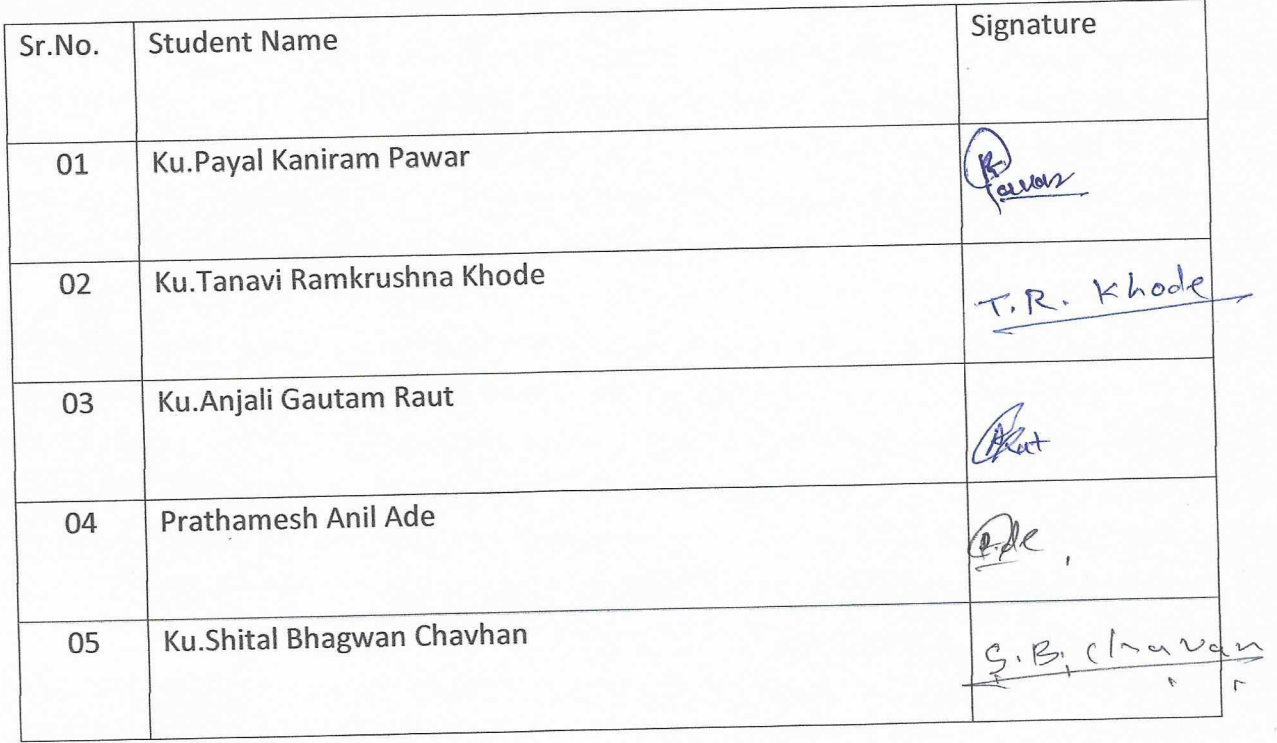 Sr.No. Student Name Signature
01 Ku.Payal Kaniram Pawar Pawar
02 Ku.Tanavi Ramkrushna Khode T.R. Khode
03 Ku.Anjali Gautam Raut
04 Prathamesh Anil Ade
05 Ku.Shital Bhagwan Chavhan S.B. Chavan